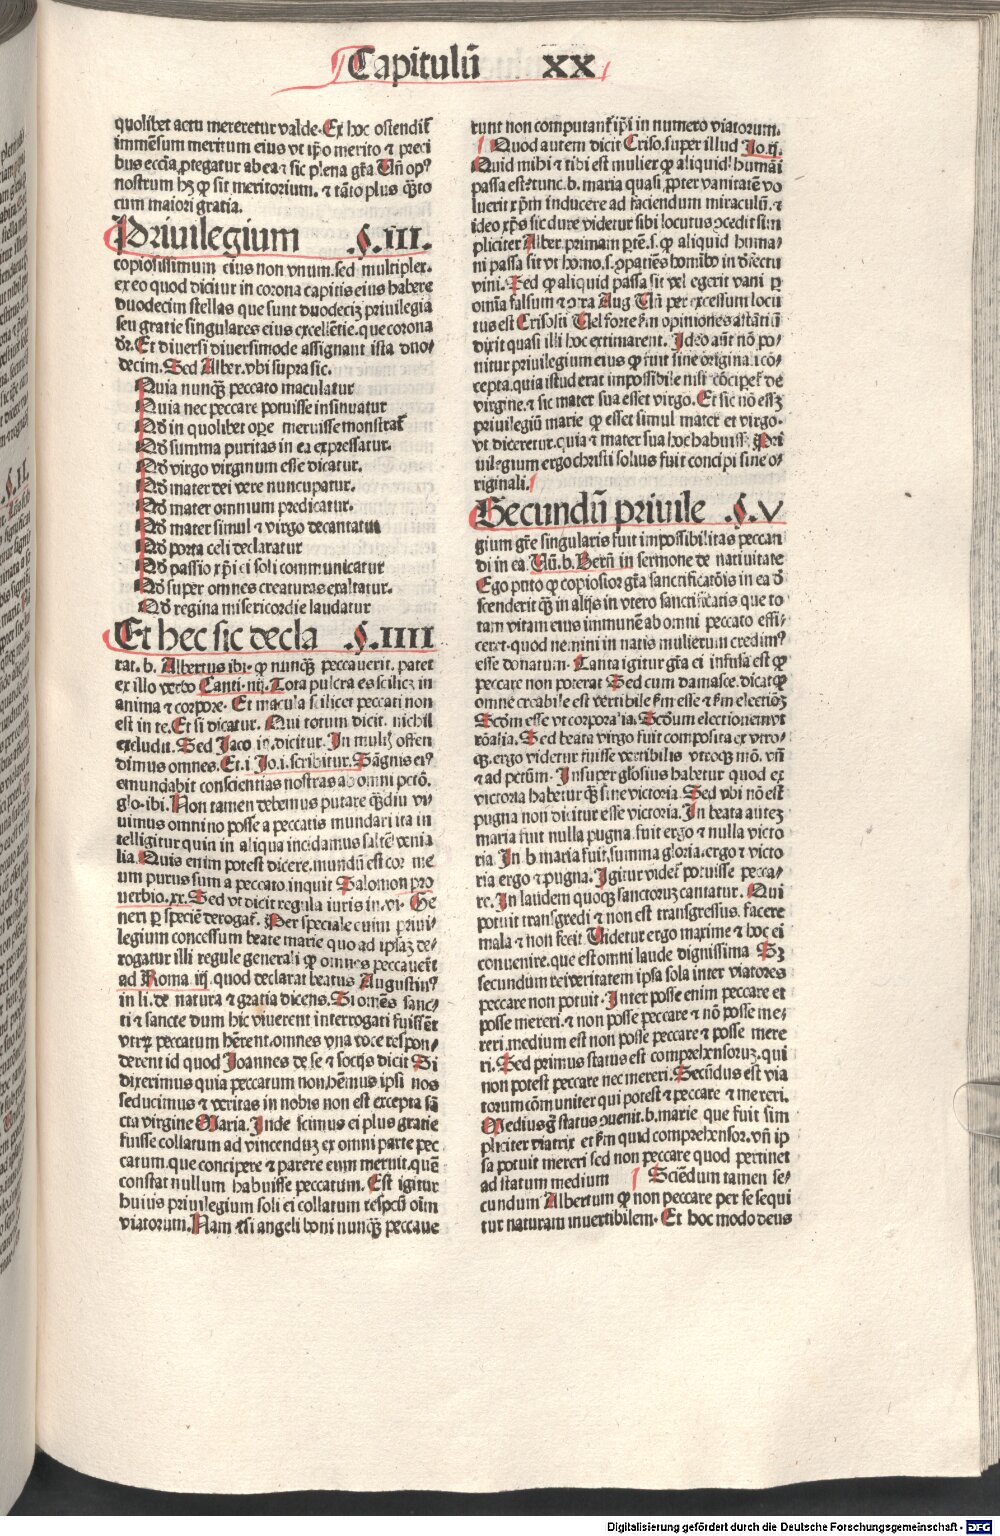 Capitulū XX
quolibet actu mereretur valde. Ex hoc ostendit̄
immēsum meritum eius vt ip̄o merito ⁊ preci
bus ecc̄ia ꝓtegatur ab ea ⁊ sic plena gr̄a. Un̄ op⁹
nostrum hꝫ ꝙ sit meritorium. ⁊ tāto plus q̄ꝫto
cum maiori gratia.
Priuilegium .§.III.
copiosissimum eius non vnum. sed multiplex.
ex eo quod dicitur in corona capitis eius habere
duodecim stellas que sunt duodecīꝫ priuilegia
seu gratie singulares eius excellētie. que corona
dr̄. Et diuersi diuersimode assignant ista duo-
decim. Sed Alber. vbi supra sic.
Quia nunqꝫ̄ peccato maculatur
Quia nec peccare potuisse insinuatur
Qd̄ in quolibet oꝑe meruisse monstrat̄
Qd̄ summa puritas in ea expressatur.
Qd̄ virgo virginum esse dicatur.
Qd̄ mater dei vere nuncupatur.
Qd̄ mater omnium predicatur.
Qd̄ mater simul ⁊ virgo decantatur
Qd̄ porta celi declaratur
Qd̄ passio xp̄i ei soli communicatur
Qd̄ super omnes creaturas exaltatur.
Qd̄ regina misericordie laudatur
Et hec sic decla .§.IIII
rat. b. Albertus ibi. ꝙ nunqꝫ̄ peccauerit. patet
ex illo verbo Canti. iiij. Tota pulcra es scilicꝫ in
anima ⁊ corpore. Et macula scilicet peccati non
est in te. Et si dicatur. Qui totum dicit. nichil
excludit. Sed Jaco iij. dicitur. In mult̄ offen
dimus omnes. Et .i Jo. i. scribitur. Sāgnis ei⁹
emundabit conscientias nostras ab omni pctō.
glo. ibi. Non tamen debemus putare qꝫ̄diu vi
uimus omnino posse a peccatis mundari ita in
telligitur quin in aliqua incidamus saltē venia
lia. Quis enim potest dicere. mundū est cor me
um purus sum a peccato. inquit Salomon pro
uerbio. xx. Sed vt dicit regula iuris in. vi. Ge
neri ꝑ speciē derogat̄. Per speciale enim priui-
legium concessum beate marie quo ad ipsaꝫ de-
rogatur illi regule generali ꝙ omnes peccauer̄t
ad Roma iij. quod declarat beatus Augustin⁹
in li. de natura ⁊ gratia dicens. Si omēs sanc-
ti ⁊ sancte dum hic viuerent interrogati fuissēt
vtrꝫ peccatum hr̄ent. omnes vna voce respon-
derent id quod Joannes de se ⁊ socijs dicit Si
dixerimus quia peccatum non hēmus ipsi nos
seducimus ⁊ veritas in nobis non est excepta sā
cta virgine Maria. Inde scimus ei plus gratie
fuisse collatum ad vincenduꝫ ex omni parte pec
catum. que concipere ⁊ parere eum meruit. quē
constat nullum habuisse peccatum. Est igitur
huius priuilegium soli ei collatum respcū oīm
viatorum. Nam etsi angeli boni nunqꝫ̄ peccaue
runt non computant̄ ip̄i in numero viatorum.
Quod autem dicit Criso. super illud Jo. ij.
Quid mihi ⁊ tibi est mulier ꝙ aliquid̓ humāi
passa est. ⁊ tunc. b. maria quasi ꝓpter vanitatē vo
lucrit xp̄m inducere ad faciendum miraculū. ⁊
ideo xp̄s sic dure videtur sibi locutus ꝯcedit sim
pliciter Alber. primam ptē. s. ꝙ aliquid huma-
ni passa sit vt homo. s. ꝯpatiēs homībꝰ in defectu
vini. Sed ꝙ aliquid passa sit vel egerit vani ꝑ
omīa falsum ⁊ ꝯtra Aug Un̄ per excessum locu
tus est Crisosti Uel forte km̄ opiniones astātiū
dixit quasi illi hoc extimarent. Ideo aūt nō po-
nitur priuilegium eius ꝙ fuit sine origina. i cō-
cepta. quia istud erat impossibile nisi cōciper̄ de
virgine. ⁊ sic mater sua esset virgo. Et sic nō essꝫ
priuilegiū marie ꝙ esset simul mater et virgo.
vt diceretur. quia ⁊ mater sua hoc habuissꝫ. Pri
uilegium ergo christi solius fuit concipi sine o-
riginali.
Secundū priuile .§.V
gium gr̄e singularis fuit impossibilitas peccan
di in ea. Un̄. b. Bern̄ in sermone de natiuitate
Ego puto ꝙ copiosior gr̄a sanctificatōis in ea d̓
scenderit qꝫ̄ in alijs in vtero sanctificatis que to
tam vitam eius immunē ab omni peccato effi-
ceret. quod nemini in natis mulierum credim⁹
esse donatum. Tanta igitur gr̄a ei infusa est ꝙ
peccare non poterat Sed cum damasce. dicat ꝙ
omne creabile est vertibile km̄ esse ⁊ km̄ electiōꝫ
Scdm̄ esse vt corporalia. Scdum electionem vt
rōalia. Sed beata virgo fuit composita ex vtro-
qꝫ. ergo videtur fuisse vertibilis vtroqꝫ mō. vn̄
⁊ ad pctūm. Insuper glōsius habetur quod ex
victoria habetur qꝫ̄ sine victoria. Sed vbi nō est
pugna non dicitur esse victoria. In beata auteꝫ
maria fuit nulla pugna. fuit ergo ⁊ nulla victo
ria In b maria fuit. summa gloria. ergo ⁊ victo
ria ergo ⁊ pugna. Igitur videt̄ potuisse pecca-
re. In laudem quoqꝫ sanctoruꝫ cantatur. Qui
potuit transgredi ⁊ non est transgressus. facere
mala ⁊ non fecit. Videtur ergo maxime ⁊ hoc ei
conuenire. que est omni laude dignissima Sꝫ
secundum rei veritatem ipsa sola inter viatores
peccare non potuit. Inter posse enim peccare et
posse mereri. ⁊ non posse peccare ⁊ nō posse me-
reri. medium est non posse peccare ⁊ posse mere
ri. Sed primus status est comprehensoruꝫ. qui
non potest peccare nec mereri. Secūdus est via
torum cōmuniter qui potest ⁊ peccare ⁊ mereri.
Medius g̊ status ꝯuenit. b. marie que fuit sim
pliciter viatrix et km̄ quid comprehensor. vn̄ ip
sa potuit mereri sed non peccare quod pertinet
ad statum medium Sciēdum tamen se-
cundum Albertum ꝙ non peccare per se sequi
tur naturam inuertibilem. Et hoc modo deus
Digitalisierung gefördert durch die Deutsche Forschungsgemeinschaft - DFG